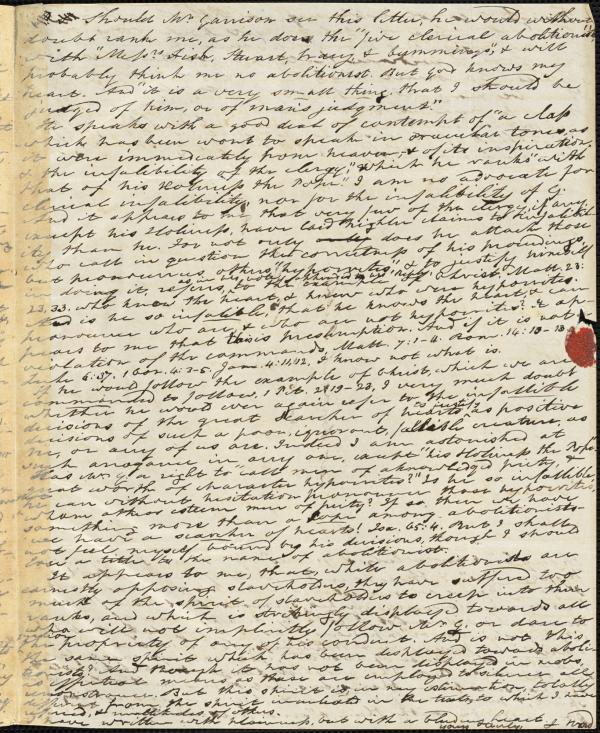 Should Mr Garrison see this letter, he would without
doubt rank me, as he does the "five clerical abolitionists,"
with "Messrs Fish, Stuart, Tracy, & Cummings," & will
probably think me no abolitionist. But God knows my
heart. And "it is a very small thing, that I should be
judged of him, or of man's judgment."
He speaks with a good deal of contempt of "a class
which has been wont to speak in oracular tones, as
it were immediately from heaven, & of its inspiration,
& the infallibility of the clergy," which he ranks "with
that of his Holiness the Pope." I am no advocate for
clerical infallibility, nor for the infallibility of G.
And it appears to me that very few of the clergy, if any,
except his Holiness, have laid higher claims to infallibil-
ity than he. For not only does he attack those
who call in question the correctness of his proceedings,
but pronounces others "hypocrites," & to justify himself
in doing it, refers to the example of Christ. Matt. 23:
23, 33, who knew the heart, & knew who were hypocrites.
And is he so infallible that he knows the heart, & can
pronounce who are & who are not hypocrites? It ap-
pears to me that this is presumption. And if it is not a
violation of the commands, Matt. 7:1-4. Rom. 14:10-13.
Luke 6:37. 1 Cor. 4:3-5. Jam. 4:11, 12, I know not what is.
If he would follow the example of Christ, which we are
commanded to follow, 1 Pet. 2:19-23, I very much doubt
whether he would ever again refer to the infallible
decisions of the great Searcher of hearts, as positive
decisions of such a poor, ignorant, fallible creature, as
he, or any of us are. Indeed I am astonished at
such arrogance in any one, except "his Holiness the Pope."
Has Mr G. a right to call men of acknowledged piety, &
great worth of character hypocrites? Is he so infallible,
he can without hesitation pronounce those hypocrites,
whom others esteem men of piety? If so, then we have
something more than a Pope among abolitionists
we have a searcher of hearts! Isa. 65:4. But I shall
not feel myself bound by his decisions, though I should
lose a title to the name of abolitionist.
It appears to me, that, while abolitionists are
earnestly opposing slaveholders, they have suffered too
much of the spirit of slaveholders to creep into their
ranks, and which is strikingly displayed towards all
who will not implicitly follow Mr G. or dare to
the propriety of any of his conduct. And is not this
the same spirit which has been displayed toward aboli-
it has not been displayed in mobs,
as these are employed to silence all
But this spirit is, in my estimation, totally
different from the spirit in the to which I have
referred, & multitudes of others.
I have written with plainness, but with a bleeding heart.
yours truly,